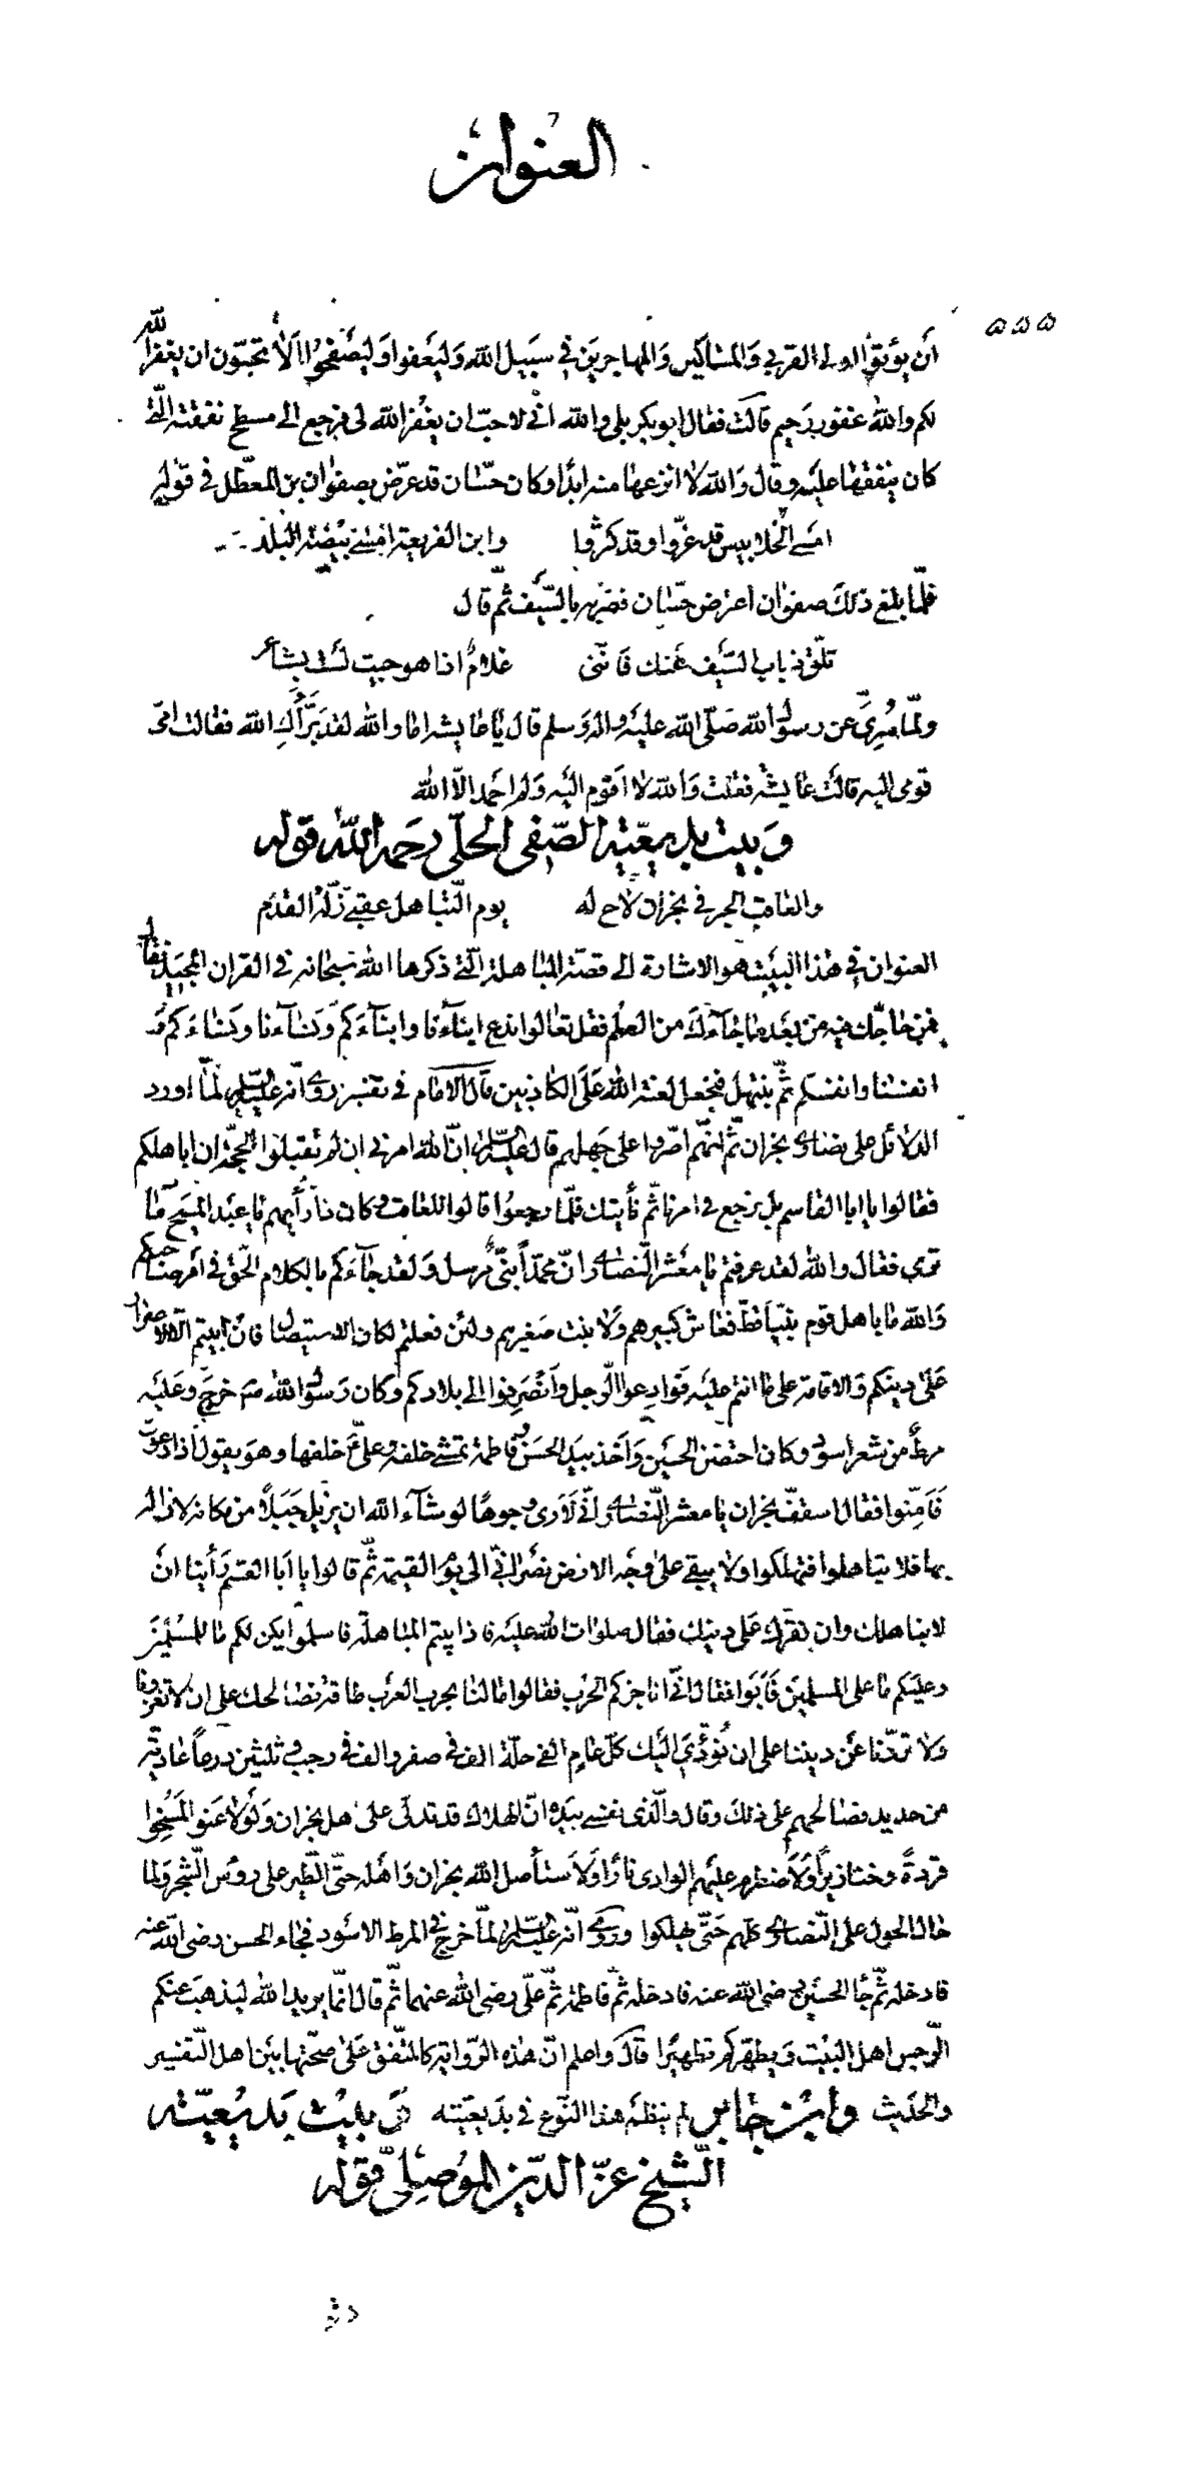 العنوان
٥٥٥
أن يؤتوا اولى القربى وَالمساكين وَالمهاجرين في سبيل الله وَليعفوا وَليصفحوا اَلا تحبّون ان يغفر الله
لكم والله غفور رَحيم قالت فقال ابو بكر بلى والله انّى لاحبّ ان يغفر الله لى فرجع الى مسطح نفقته الّتى
كان ينفقها عليه وقال وَالله لا انزعها منه ابدًا وكان حسّان قد عرّض بصفوان بن المعطّل في قوله
امسى الخلابيس قد عزّوا وقد كثروا وابن الفريعة امسى بيضة البلد
فلمّا بلغ ذلك صفوان اعترض حسّان فضربه بالسّيف ثمّ قال
تلقّ ذباب السّيف عنك فانّنى غلامٌ اذا هوجيت لست بشاعر
ولمّا سُرِّيَ عن رسول الله صَلّى الله عليه واله وَسلم قال يا عايشه اما والله لقد بَرَّأكِ الله فقالت امّى
قومى اليه قالت عايشه فقلت وَالله لا اَقوم اليه وَلا احمد الّا الله
وَبيت بديعيّة الصّفى الحلّى رحمه الله قوله
والعاقب الحبر في نجران لاح له يوم التّباهل عقبى زلّة القدم
العنوان في هذا البيت هو الاشارة الى قصّة المباهلة الّتى ذكرها الله سبحانه في القران المجيد فقال
فمن حاجّك فيه من بعد ما جاءَك من العلم فقل تعالوا ندع ابناءَنا وابناءَكم ونساءَنا ونساءَكم وَ
انفسنا وانفسكم ثمّ نبتهل فنجعل لعنة الله عَلَى الكاذبين قال الامام في تفسيره روى انّه عليه السّلم لمّا اورد
الدلائل على نصارى نجران ثمّ انّهم اصّروا على جَهلهم قال عليه السّلم انّ الله امرنى ان لم تقبلوا الحجّة ان اباهلكم
فقالوا يا ابا القاسم بل نرجع في امرنا ثمّ نأتيك فلمّا رجعوُا قالوا للعاقب وكان ذا رأيهم يا عبد المسيح ما
ترى فقال والله لقد عرفتم يا معشر النّصارى انّ محمّداً نبىّ مُرسل وَلقد جاءَكم بالكلام الحقّ في أمر صاحبكم
وَالله ما باهل قوم نبيّاً قطّ فعاش كبيرهم وَلا نبت صَغيرهم ولئن فعلتم لكان الاستيصال فان ابيتم الّا الاصرار
عَلَى دينكم وَالاقامة على ما انتم عليه فَوادِعوا الرّجل وَانصَرِفوا الى بلادكم وكان رَسول الله ص خرج وعَلَيه
مرطٌ من شعر اسود وكان احتضن الحسين وَاَخذ بيد الحسَن وَفاطمة تمشى خلفه وعلىّ ع خلفها وهو يقول اذا دعوت
فَأمّنوا فقال اسقفّ نجران يا معشر النّصارى انّى لَاَرى وجوهًا لو شاء الله ان يزيل جَبَلاً من مكانه لازاله
بها فلا تباهلوا فتهلكوا ولا يبقى على وَجه الارض نصَرانىّ الى يوم القيمة ثمّ قالوا يا اَبا القسم رَأينا ان
لا نباهلك وان نقرّك عَلى دينك فقال صلوات الله عليه فاذا ابيتم المباهلة فاسلموا يكن لكم ما للمُسْلمِينَ
وعليكم ما على المسلمين فَاَبَوا فقال انّى اناجزكم الحَرب فقالوا ما لنا بحرب العَرب طاقة ولكن نصالحك على ان لا تغزونا
وَلا تردّنا عن ديننا على ان نُؤدّي اليك كلّ عامٍ الفى حلّة الف في صفر والف في رجب و ثلثين درعاً عاديّة
من حديد فصالحهم على ذلكَ وقال والّذى نفسى بيَده انّ الهلاك قد تدلّى على اهل نجران وَلَولا عنو المُسِخوا
قردةً وخنازير وَلَاَضطرم عليهم الوادى نارًا وَلَاستأصل الله نجران وَاهله حتّى الطّير على روُس الشّجر ولما
حال الحول على النّصارى كلّهم حَتّى يهلكوا وروى انّه عليه السّلم لمّا خرج في المرط الاسود فجاء الحسن رضى الله عنه
فادخله ثمّ جاء الحسَين رضى الله عنه فادخله ثمّ فاطمة ثمّ علىّ رضى الله عنهما ثمّ قال انّما يريد الله ليذهبَ عنكم
الرّجس اهل البيت وَيطهّركم تطهيرًا قال واعلم انّ هذه الرّواية كالمتّفق عَلى صحّتها بين اهل التّفسير
والحديث وابن جابر لم ينظم هذا النّوع في بديعيّته وَبيت بَديعيّة
الشّيخ عزّ الدّين الموصلىّ قوله